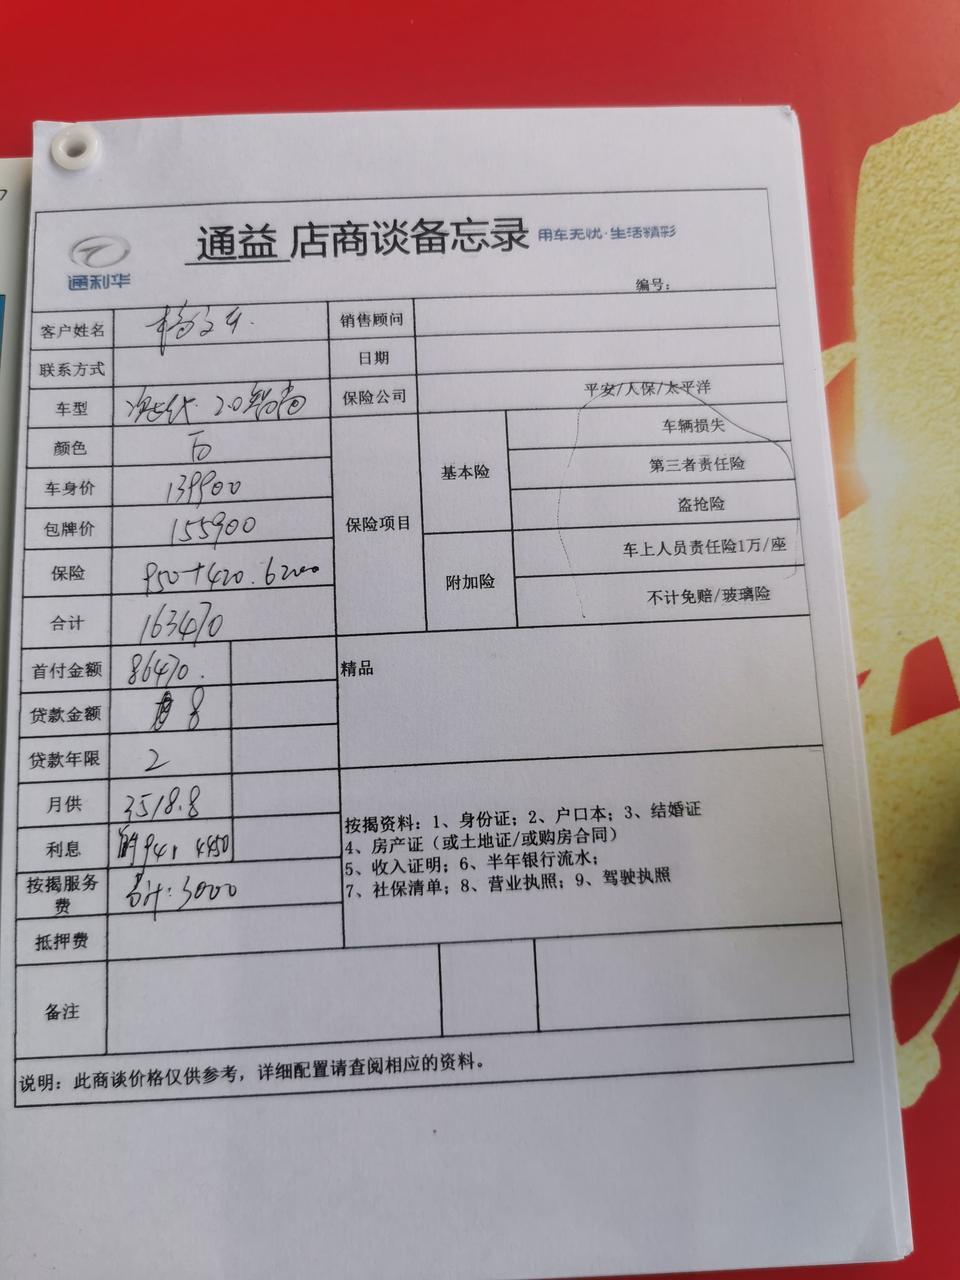 通益 店商谈备忘录 用车无忧·生活精彩
通利华
编号：
客户姓名 杨 销售顾问
联系方式 日期
车型 2.0智尚 保险公司 平安/人保/太平洋
颜色 白 保险项目 基本险 车辆损失
车身价 139900 第三者责任险
包牌价 155900 盗抢险
保险 950+420. 附加险 车上人员责任险1万/座
合计 163470 不计免赔/玻璃险
首付金额 86470. 精品
贷款金额 8
贷款年限 2
月供 3518.8
利息 941 4450
按揭服务费 合计：3000
抵押费
按揭资料：1、身份证；2、户口本；3、结婚证
4、房产证（或土地证/或购房合同）
5、收入证明；6、半年银行流水；
7、社保清单；8、营业执照；9、驾驶执照
备注
说明：此商谈价格仅供参考，详细配置请查阅相应的资料。